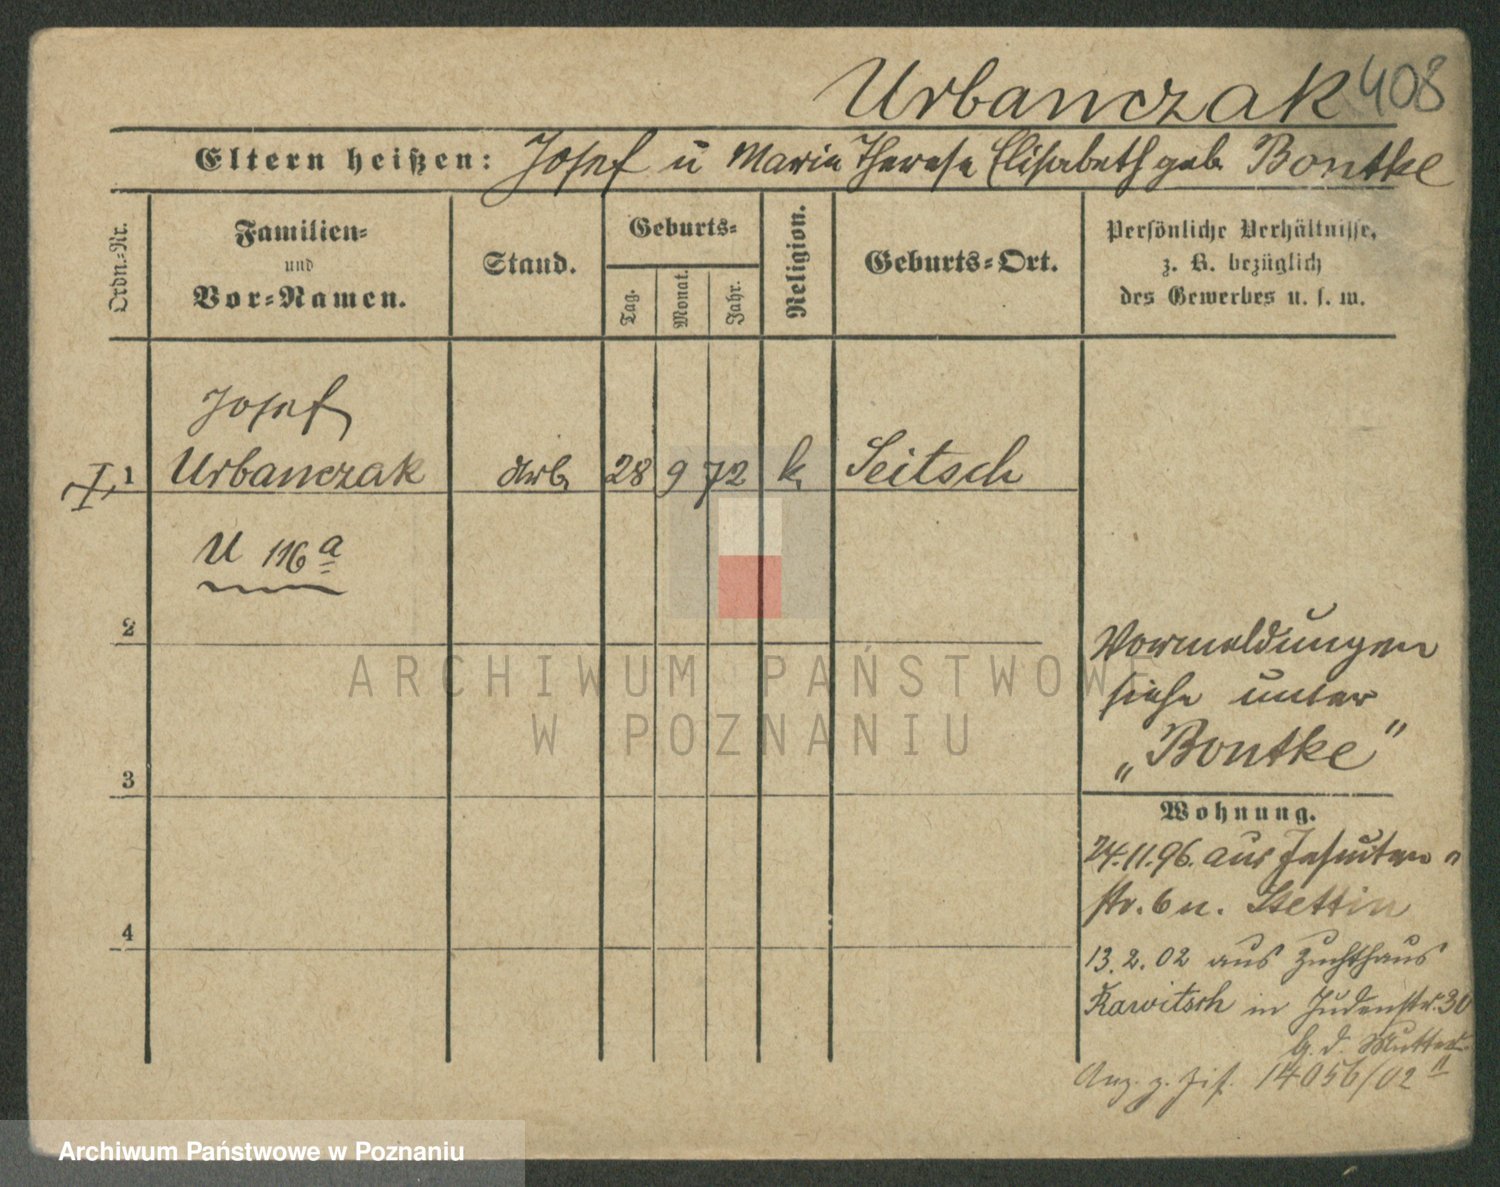 Urbanczak 408
Eltern heißen: Josef u Marie Therese Elisabeth geb. Bontke
Ordn.-Nr.
Familien-
und
Vor-Namen.
Stand.
Geburts-
Tag.
Monat.
Jahr.
Religion.
Geburts-Ort.
Persönliche Verhältnisse,
z. B. bezüglich
des Gewerbes u. s. w.
Josef
1 Urbanczak Arb. 28 9 72 k. Seitsch
U 116 a
2
Vormeldungen
siehe unter
„Bontke"
3
Wohnung.
24.11.96. aus Jesuiten
str. 6 n. Stettin
4
13.2.02 aus Zuchthaus
Rawitsch in Judenstr. 30
b. d. Mutter
14056/02
ARCHIWUM PAŃSTWOWE
W POZNANIU
Archiwum Państwowe w Poznaniu